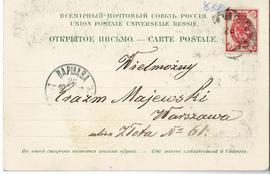 ВСЕМІРНЫЙ ПОЧТОВЫЙ СОЮЗЪ. РОССІЯ.
UNION POSTALE UNIVERSELLE RUSSIE.
ОТКРЫТОЕ ПИСЬМО. — CARTE POSTALE.
Wielmożny
ВАРШАВА
Erazm Majewski
Warszawa
ulica Złota № 61.
На этой сторонѣ пишется только адресъ. — Côté réservé exclusivement à l'adresse.